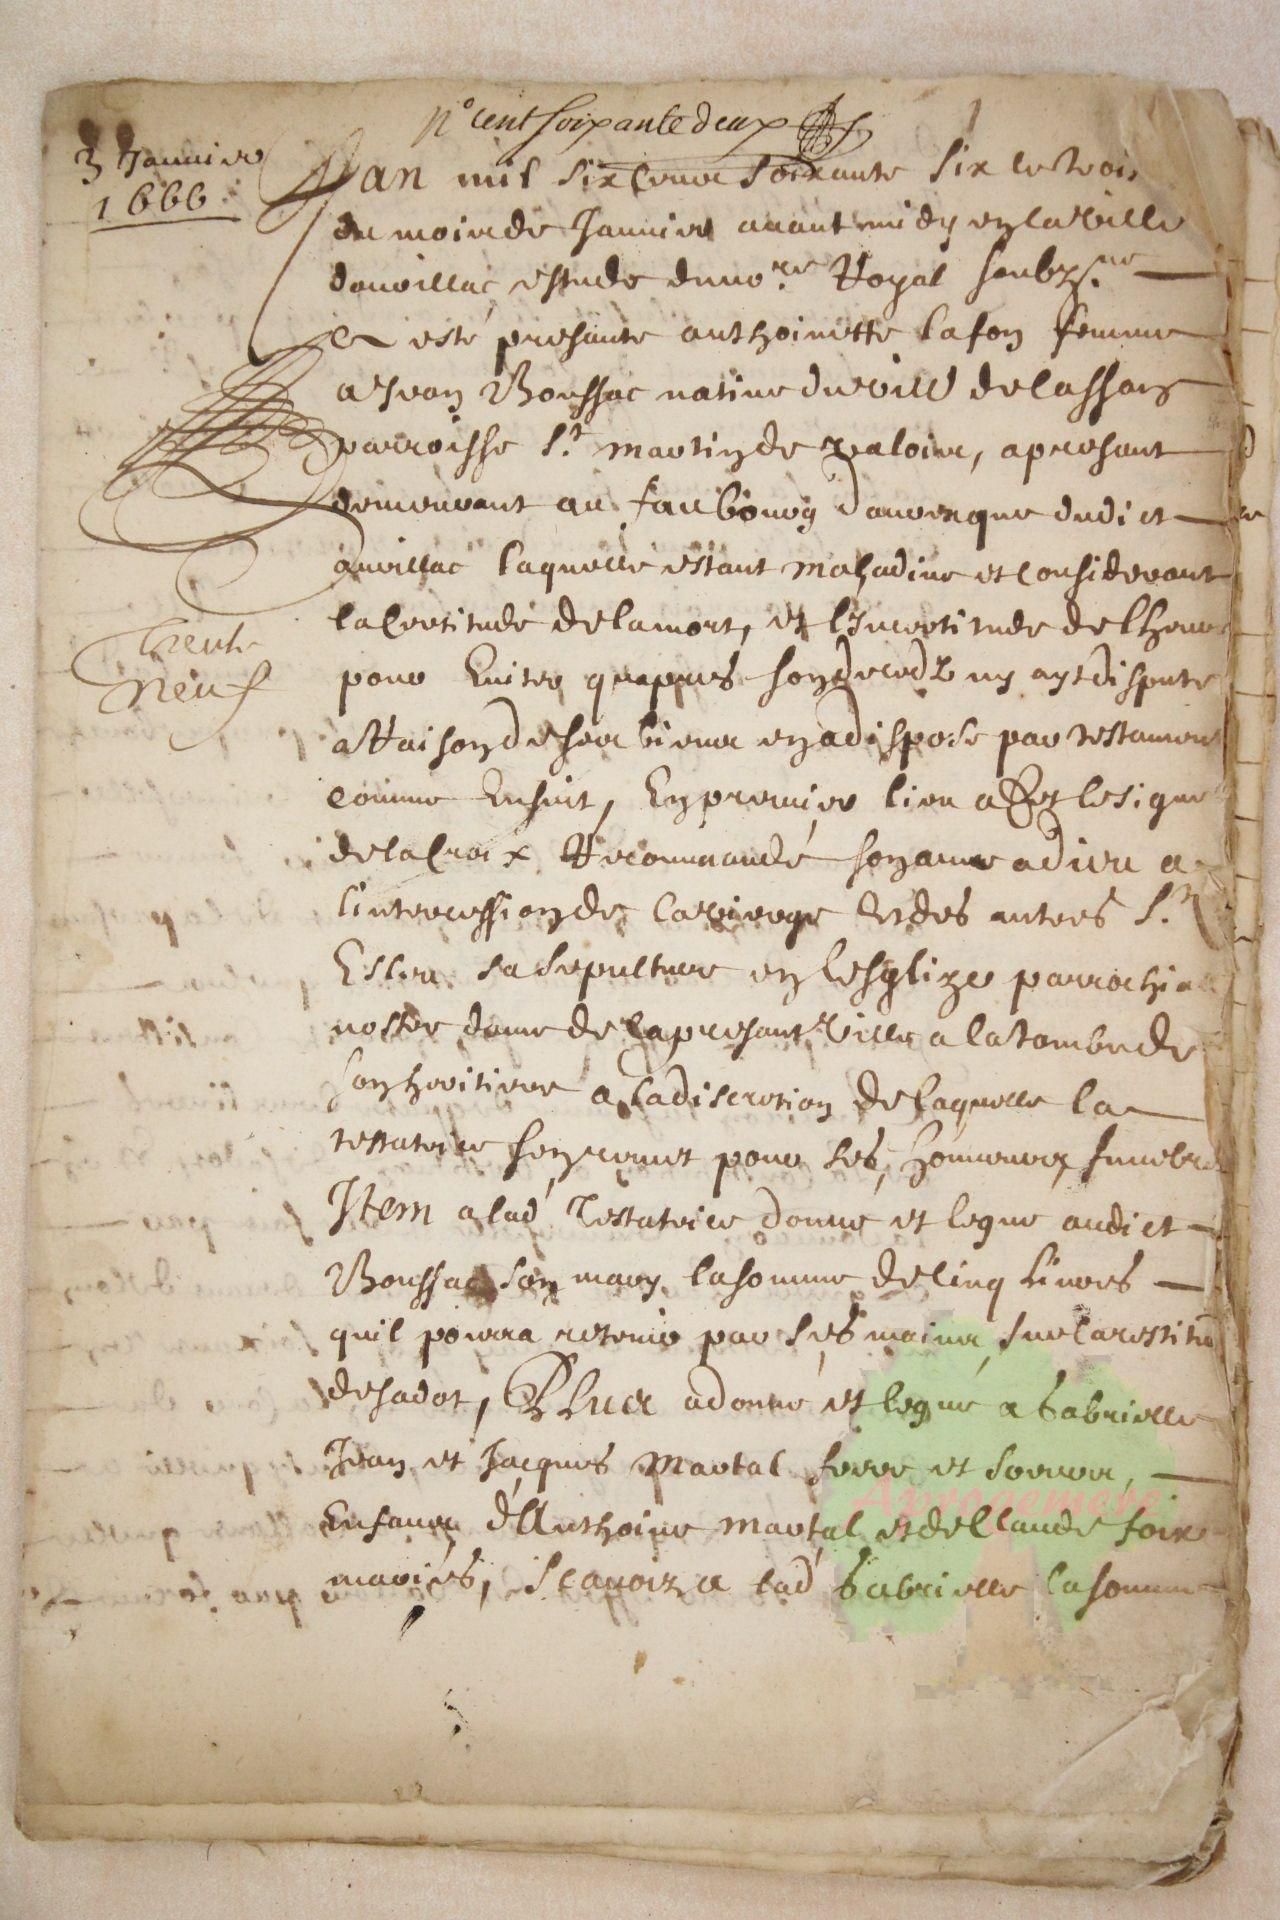 N° cent soixante deux
3 Janvier
1666
L'an mil six cens soixante six le trois
du mois de Janvier avant midy en la ville
dauvillac estude du no.re Royal soubz.ne
a esté presante anthoinette lafon femme
a Jean Boussac natifve du vill
parroisse S.t martin de valoire, a presant
demeurant au faubourg dauvergne dudict
auvillac laquelle estant maladive et considerant
la certitude de la mort, et l'Incertitude de lheure
pour Eviter quapres son deceds ny ayt dispute
a Raison de ses biens en a dispose par testament
comme Ensuit, En premier lieu a fet le signe
de la Croix Recommandé son ame a dieu a
l'intercession de la vierge et des autres S.ts
Esleu sa sepulture en lesglize parrochial
nostre dame de la presant ville a la tombe de
son heritiere a la discretion de laquelle la
testatrice sen remet pour ses honneurs funebres
Item a lad testatrice donné et legué audict
Boussac son mary la somme de Cinq livres
quil pourra retenir par ses mains sur la restitu
de sa dot, Plus a donné et legué a Gabrielle
Jean et Jacques Martal frere et soeur,
Enfans d'Anthoine martal et de Claude foix
mariés, Scavoir a lad Gabrielle la somme
trente
neuf
Aprogemere